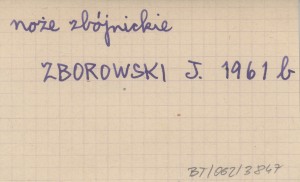 noże zbójnickie
ZBOROWSKI J. 1961 b
BT/062/3847